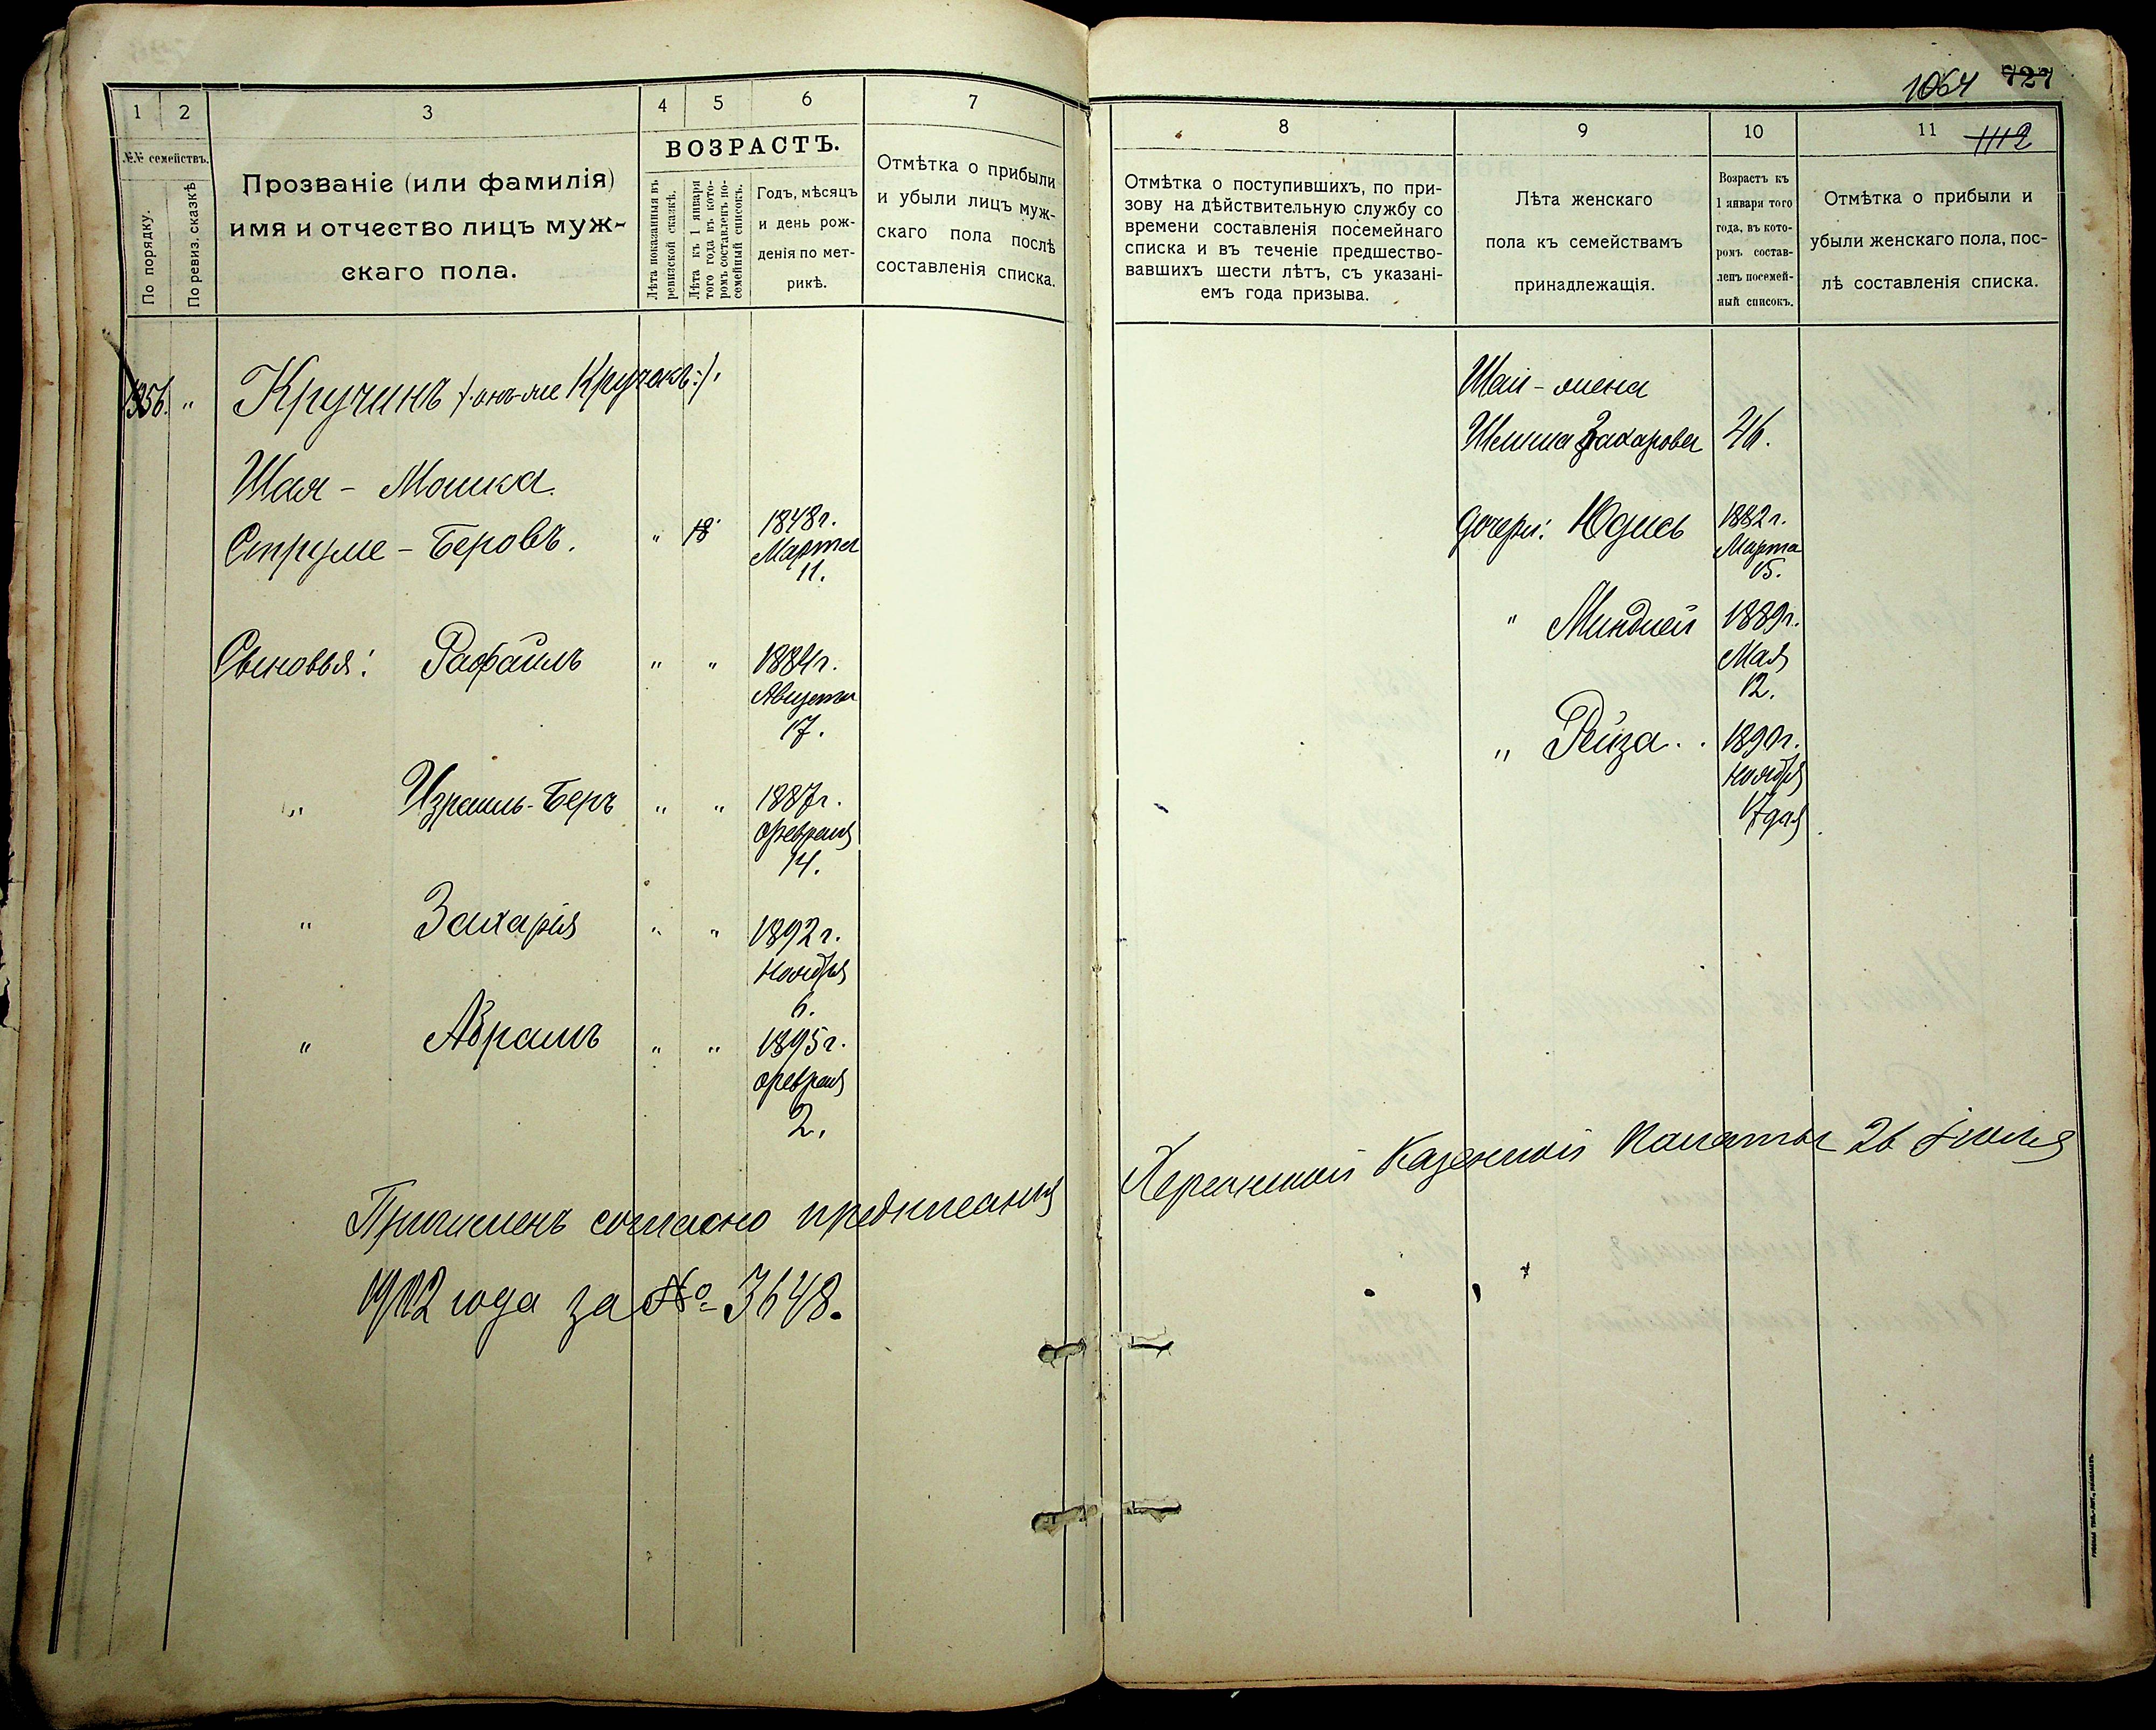 1064 727
1112
1 2 3 4 5 6 7
№№ семействъ.
По порядку.
По ревиз. сказкѣ
Прозваніе (или фамилія)
имя и отчество лицъ муж-
скаго пола.
ВОЗРАСТЪ.
Лѣта показанныя въ
ревизской сказкѣ.
Лѣта къ 1 января
того года въ кото-
ромъ составленъ по-
семейный списокъ.
Годъ, мѣсяцъ
и день рож-
денія по мет-
рикѣ.
Отмѣтка о прибыли
и убыли лицъ муж-
скаго пола послѣ
составленія списка.
1356. " Кручинъ /:онъ-же Кручакъ:/.
Шая - Мошка
Струме - Беровъ. " 18 1848 г.
Марта
11.
Сыновья: Рафаилъ " " 1884 г.
Августа
17.
" Израиль-Беръ " " 1887 г.
Февраля
14.
" Захарія " " 1892 г.
Ноября
6.
" Абрамъ " " 1895 г.
Февраля
2.
8 9 10 11
Отмѣтка о поступившихъ, по при-
зову на дѣйствительную службу со
времени составленія посемейнаго
списка и въ теченіе предшество-
вавшихъ шести лѣтъ, съ указані-
емъ года призыва.
Лѣта женскаго
пола къ семействамъ
принадлежащія.
Возрастъ къ
1 января того
года, въ кото-
ромъ состав-
ленъ посемей-
ный списокъ.
Отмѣтка о прибыли и
убыли женскаго пола, пос-
лѣ составленія списка.
Шаи - жена
Захарова 46.
Дочери: Юдись 1882 г.
Марта
15.
" Миндлей 1889 г.
Мая
12.
" Рейза . . 1890 г.
Ноября
17 дня
Причисленъ согласно предписанія Херсонской Казенной Палаты 26 Іюля
1912 года за № 3648.